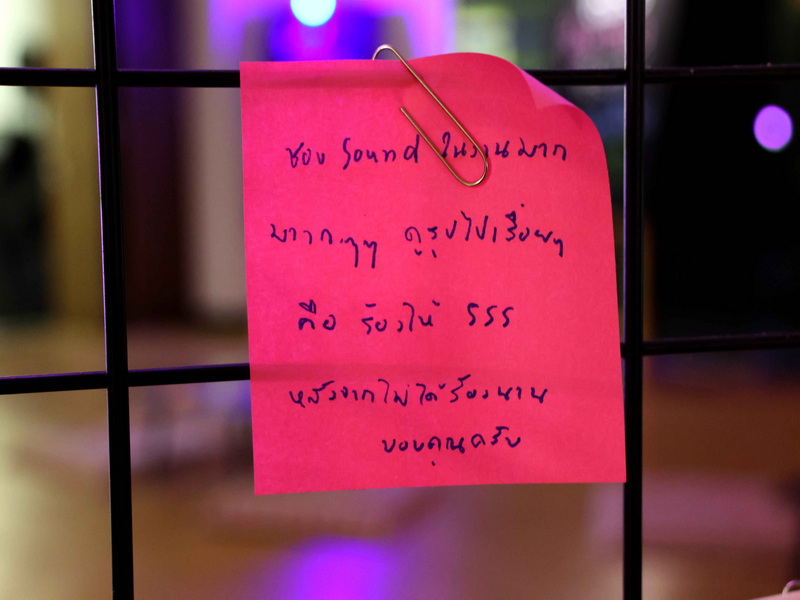 ชอบ Sound ในงานมาก
มากกๆๆ ดูรูปไปเรื่อยๆ
คือ ร้องไห้ 555
หลังจากไม่ได้ร้องนาน
ขอบคุณครับ